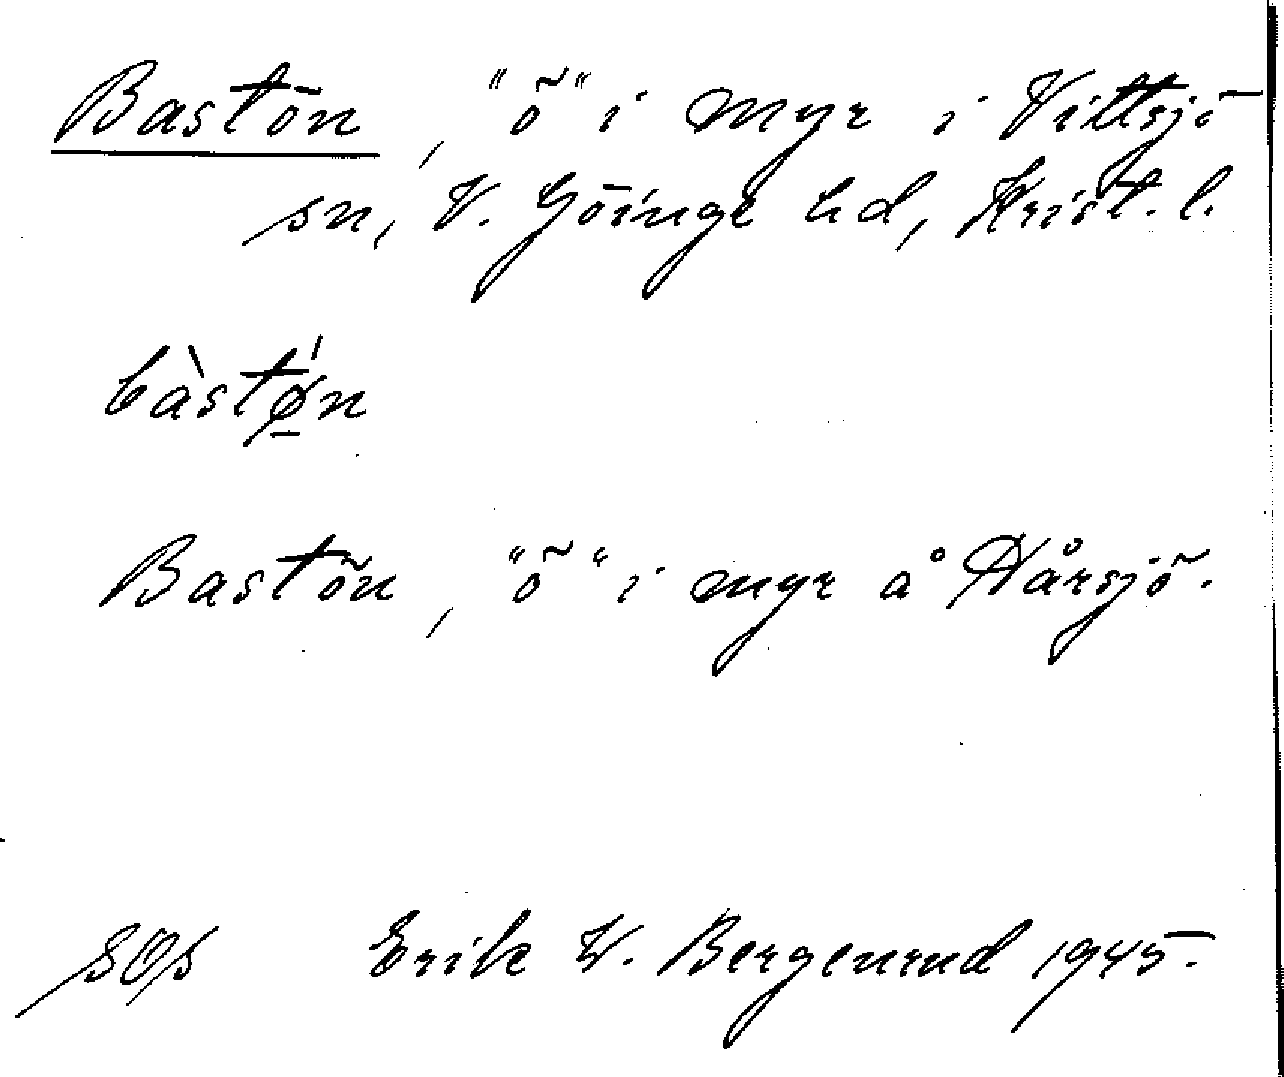 Bastön, "ö" i myr i Vittsjö
sn, V. Göinge hd, Krist. l.
bàstǿ̲n
Bastön, "ö" i myr å Hårsjö.
Erik W. Bergenrud 1945.